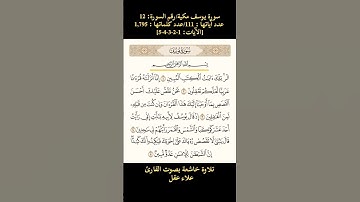 سورة يوسف مكية/رقم السورة: 12
عدد آياتها : 111/عدد كلماتها : 1,795
[الآيات: 1-2-3-4-5]
سُورَةُ يُوسُفَ
بِسْمِ ٱللَّهِ ٱلرَّحْمَٰنِ ٱلرَّحِيمِ
الٓر تِلْكَ ءَايَٰتُ ٱلْكِتَٰبِ ٱلْمُبِينِ ١ إِنَّآ أَنزَلْنَٰهُ قُرْءَٰنًا
عَرَبِيًّا لَّعَلَّكُمْ تَعْقِلُونَ ٢ نَحْنُ نَقُصُّ عَلَيْكَ أَحْسَنَ
ٱلْقَصَصِ بِمَآ أَوْحَيْنَآ إِلَيْكَ هَٰذَا ٱلْقُرْءَانَ وَإِن كُنتَ مِن قَبْلِهِۦ
لَمِنَ ٱلْغَٰفِلِينَ ٣ إِذْ قَالَ يُوسُفُ لِأَبِيهِ يَٰٓأَبَتِ إِنِّي رَأَيْتُ
أَحَدَ عَشَرَ كَوْكَبًا وَٱلشَّمْسَ وَٱلْقَمَرَ رَأَيْتُهُمْ لِي سَٰجِدِينَ ٤
قَالَ يَٰبُنَيَّ لَا تَقْصُصْ رُءْيَاكَ عَلَىٰٓ إِخْوَتِكَ فَيَكِيدُوا۟ لَكَ كَيْدًا
إِنَّ ٱلشَّيْطَٰنَ لِلْإِنسَٰنِ عَدُوٌّ مُّبِينٌ ٥
تلاوة خاشعة بصوت القارئ
علاء عقل